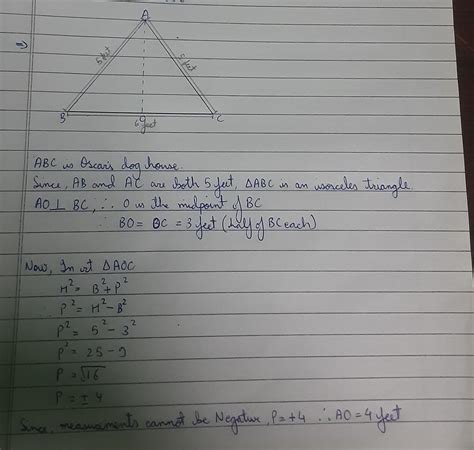 A
5 feet
5 feet
B
6 feet
C
ABC is Oscar's dog house.
Since, AB and AC are both 5 feet, △ABC is an isosceles triangle
AO⊥ BC, ∴ O is the midpoint of BC
∴ BO = OC = 3 feet (half of BC each)
Now, In rt △AOC
H² = B²+P²
∴ P² = H²-B²
P² = 5²-3²
P² = 25-9
P = √16
P = ± 4
Since, measurements cannot be Negative, P = +4 ∴ AO = 4 feet